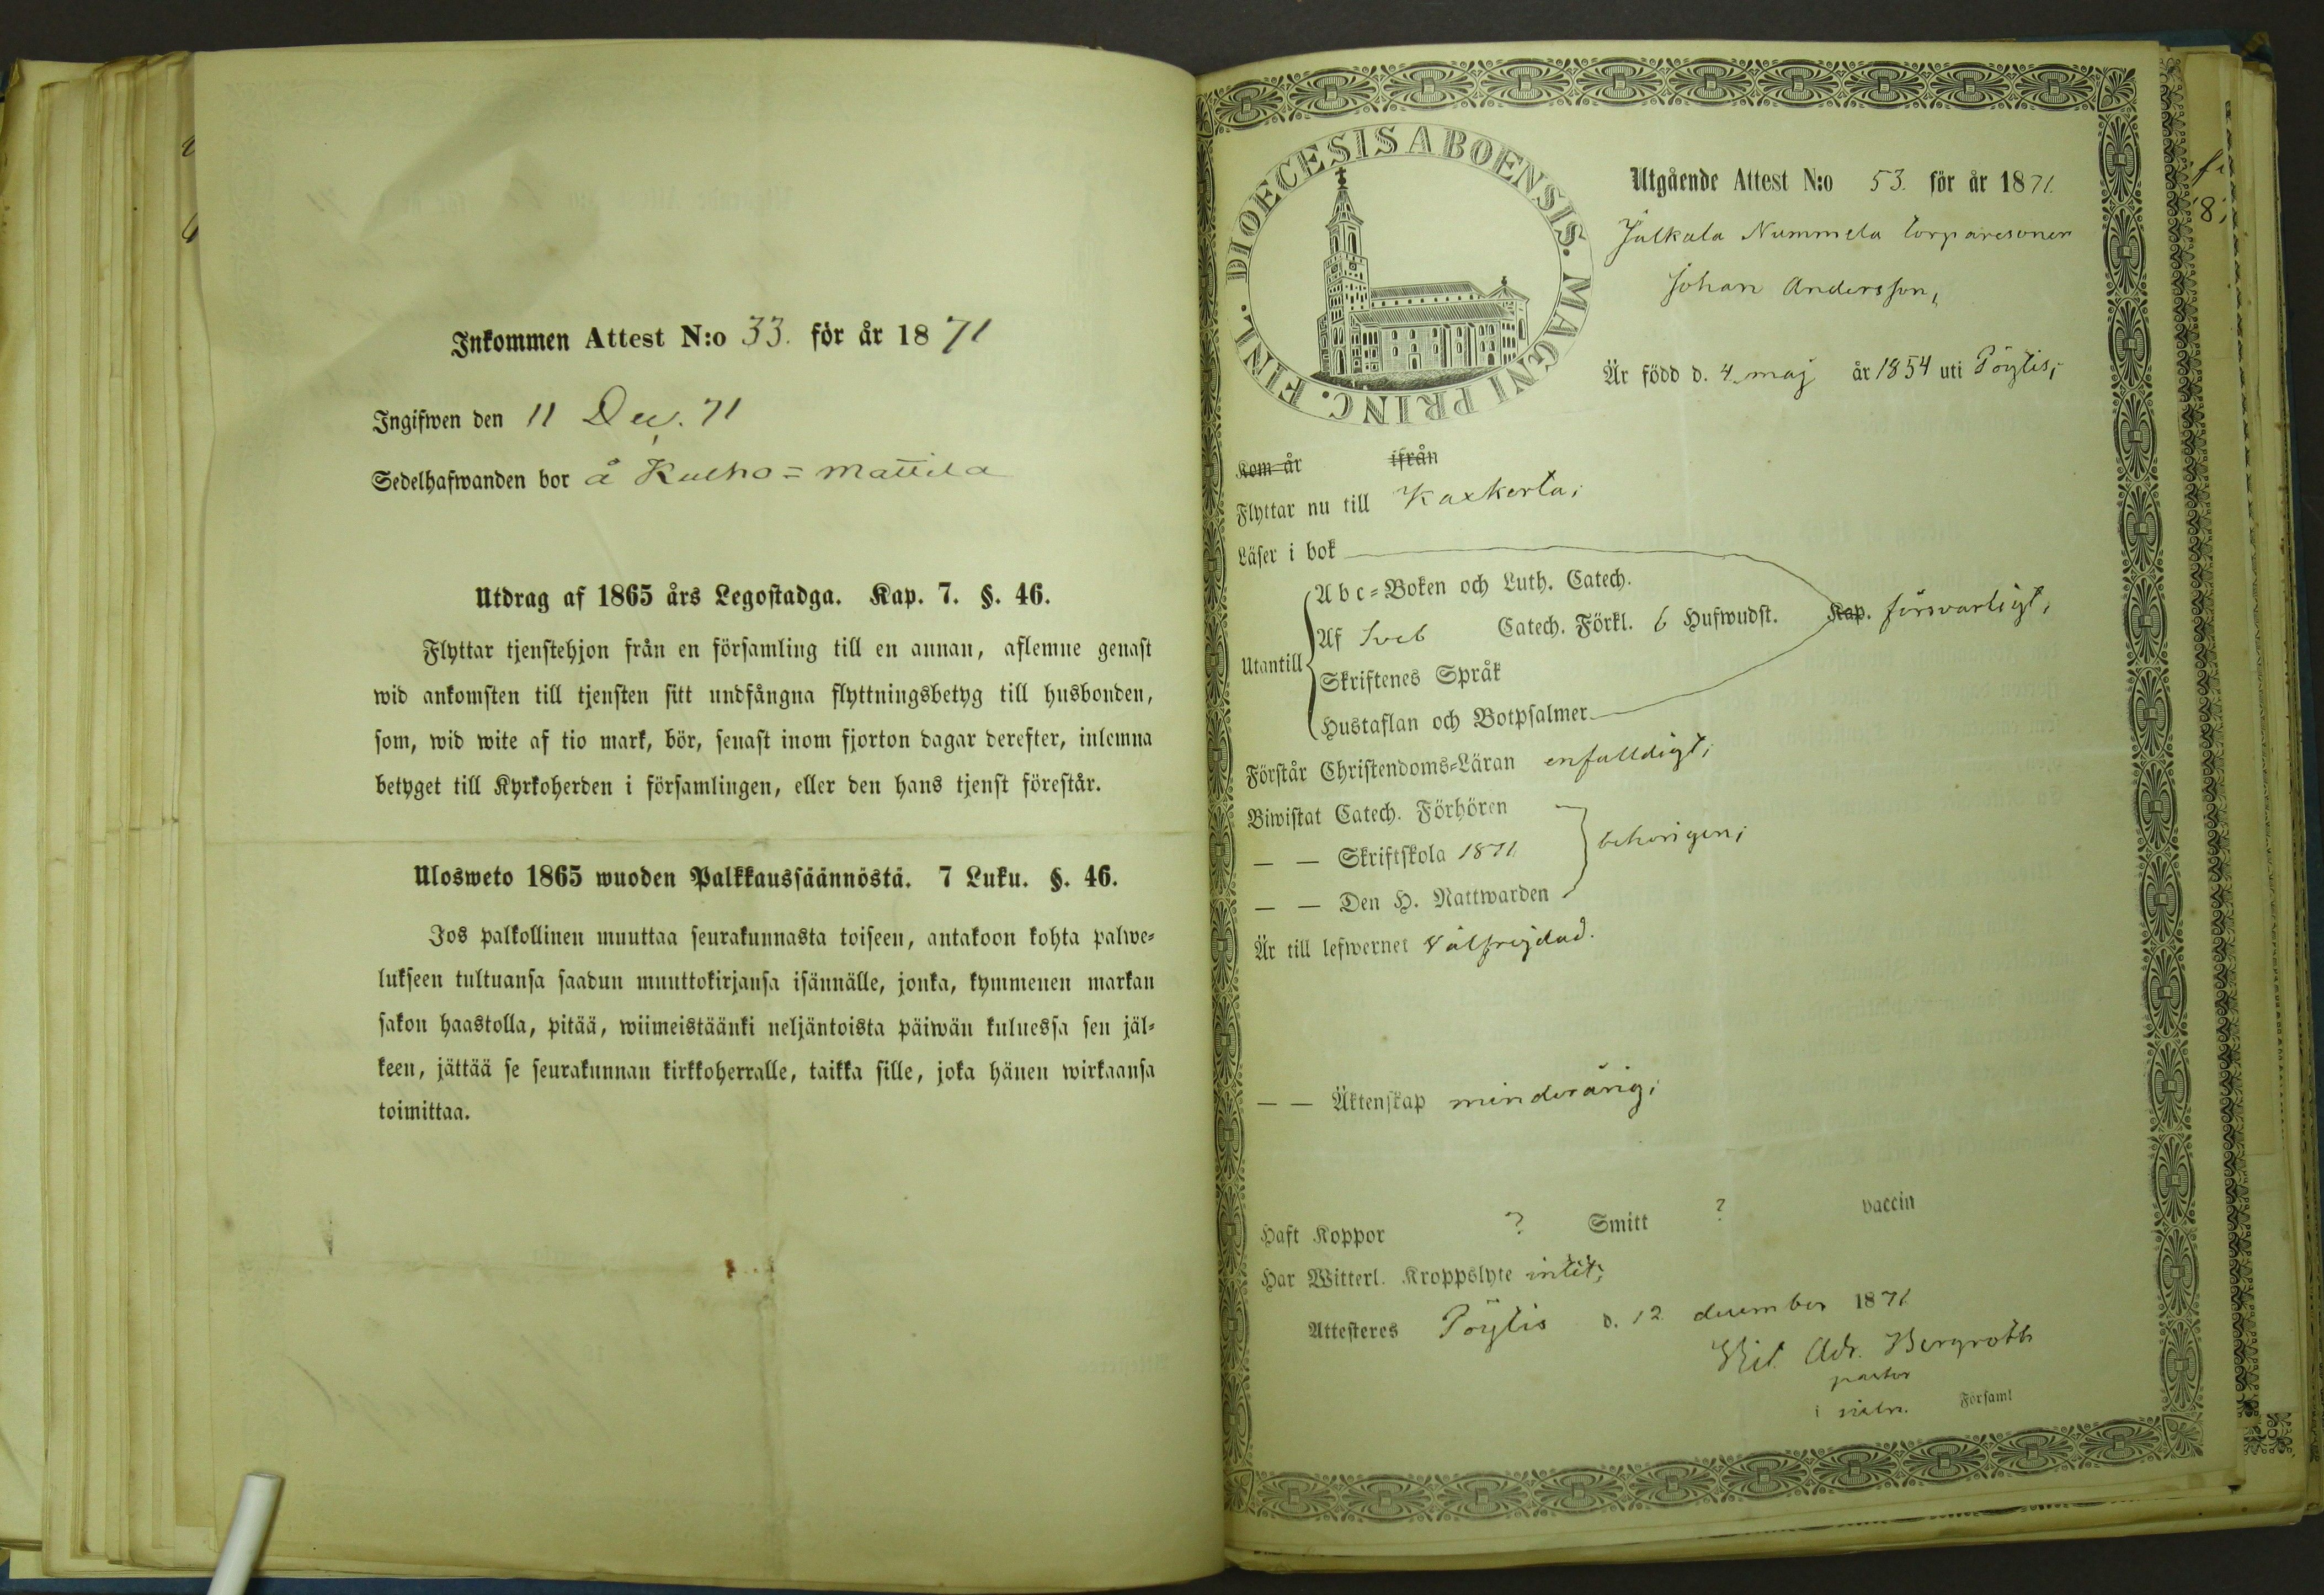 Inkommen Attest N:o 33. för år 1871
Ingifwen den 11 Dec. 71
Sedelhafwanden bor å Kulho=Mattila
Utdrag af 1865 års Legostadga. Kap. 7. §. 46.
Flyttar tjenstehjon från en församling till en annan, aflemne genast
wid ankomsten till tjensten sitt undfångna flyttningsbetyg till husbonden,
som, wid wite af tio mark, bör, senast inom fjorton dagar derefter, inlemna
betyget till Kyrkoherden i församlingen, eller den hans tjenst förestår.
Ulosweto 1865 wuoden Palkkaussäännöstä. 7 Luku. §. 46.
Jos palkollinen muuttaa seurakunnasta toiseen, antakoon kohta palwe=
lukseen tultuansa saadun muuttokirjansa isännälle, jonka, kymmenen markan
sakon haastolla, pitää, wiimeistäänki neljäntoista päiwän kuluessa sen jäl=
keen, jättää se seurakunnan kirkkoherralle, taikka sille, joka hänen wirkaansa
toimittaa.
DIOECESIS ABOENSIS. MAGNI PRINC. FINL.
Utgående Attest N:o 53. för år 1871.
Julkala Nummela torparesonen
Johan Andersson,
Är född d. 4 maj år 1854 uti Pöytis;
Kom år ifrån
Flyttar nu till Kaxkerta;
Läser i bok
Utantill
A b c=Boken och Luth. Catech.
Af Sveb Catech. Förkl. 6 Hufwudst. Kap. försvarligt;
Skriftenes Språk
Hustaflan och Botpsalmer
Förstår Christendoms=Läran enfalldigt;
Biwistat Catech. Förhören
— — Skriftskola 1871 behörigen;
— — Den H. Nattwarden
Är till lefwernet välfrejdad.
— — Äktenskap minderårig;
Haft Koppor ? Smitt ? vaccin
Har Witterl. Kroppslyte intet;
Attesteres Pöytis d. 12 december 1871
Adr. Bergroth
pastor
i Församl